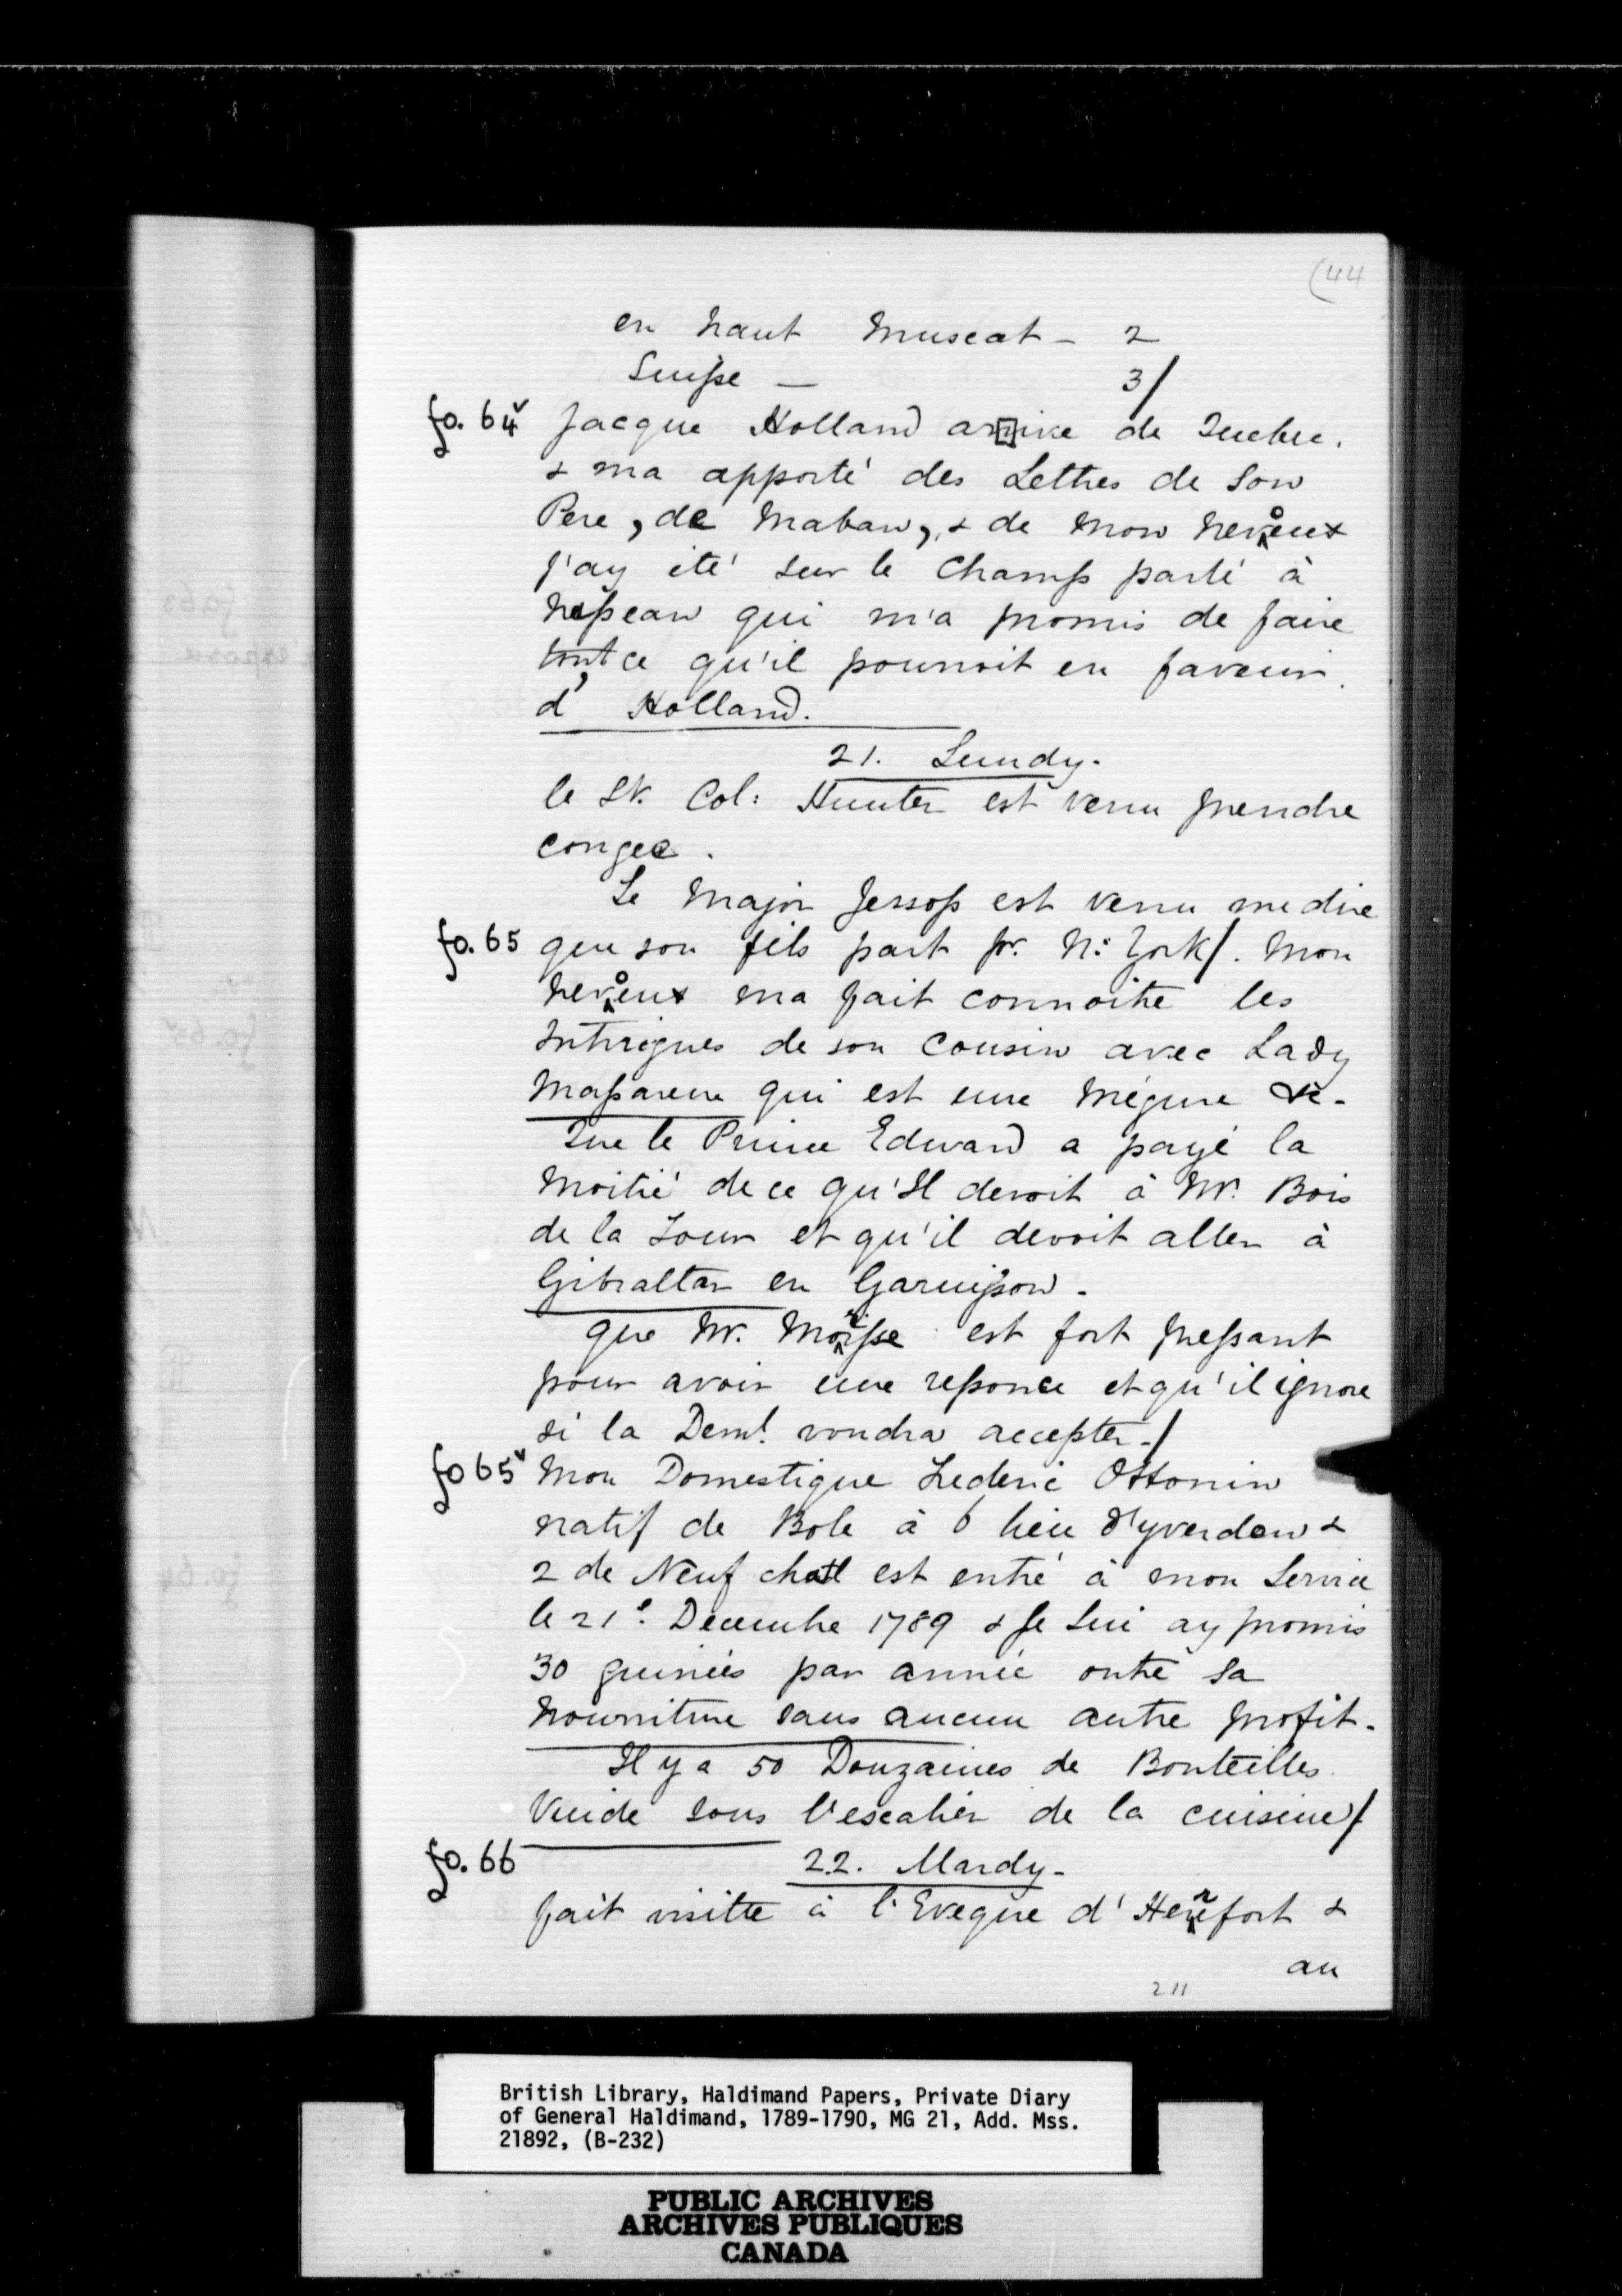 (44
en haut Muscat - 2
Suisse - 3/
fo. 64v Jacque Holland arrive de Quebec.
& ma apporté des Lettres de Son
Pere, de Maban, & de Mon neveux
J'ay été sur le Champ parlé à
Nepean qui m'a promis de faire
tout ce qu'il pourroit en faveur
d' Holland.
21. Lundy.
le Lt. Col: Hunter est venu prendre
congee.
Le Major Jessop est venu me dire
fo. 65 que son fils part pr. N: York/. Mon
neveux ma fait connoitre les
Intrigues de son Cousin avec Lady
Massarene qui est une Mégure &c-
Que le Prince Edward a payé la
Moitié de ce qu'Il devoit à Mr. Bois
de la Tour et qu'il devoit aller à
Gibraltar en Garnison.
que Mr. est fort pressant
pour avoir une responce et qu'il ignore
si la Deml. voudra accepter-/
fo 65v Mon Domestique Frederic Ottonin
natif de Bole à 6 lieu d'yverdon &
2 de Neuf chatl est entré à mon Service
le 21e. Decembre 1789 & Je Lui ay promis
30 guinées par année outre Sa
Nourriture sans aucun autre profit.
Il y a 50 Douzaines de Bouteilles
Vuide sous l'escalier de la cuisine/
fo. 66 22. Mardy-
fait visitte à l'Eveque d' Herefort &
au
211
British Library, Haldimand Papers, Private Diary
of General Haldimand, 1789-1790, MG 21, Add. Mss.
21892, (B-232)
PUBLIC ARCHIVES
ARCHIVES PUBLIQUES
CANADA